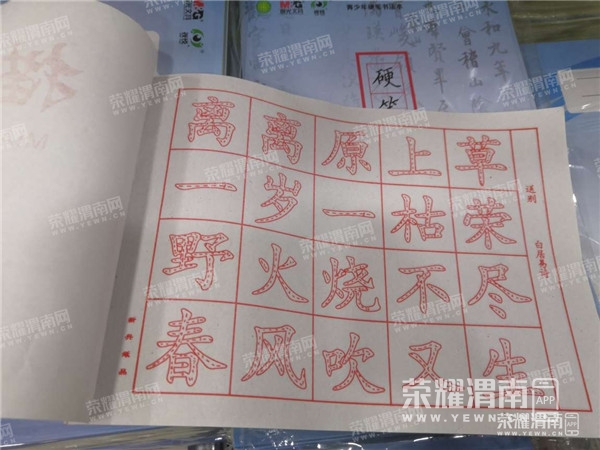 M&G
永和九年
硬笔
送别
白居易
离离原上草
一岁一枯荣
野火烧不尽
春风吹又生
荣耀渭南网
WWW.YEWN.CN
荣耀渭南网 APP
WWW.YEWN.CN